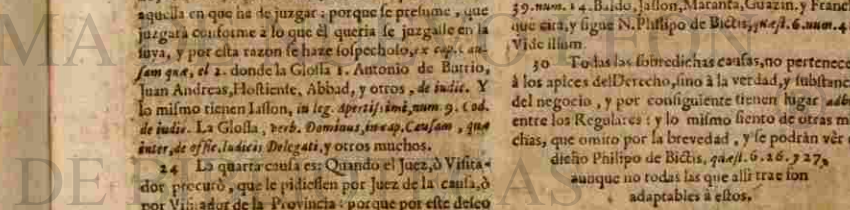 aquella en que ha de juzgar: porque se presume, que
juzgará conforme à lo que èl queria se juzgasse en la
suya, y por esta razon se haze sospechoso, ex cap. cau-
sam quæ, el 2. donde la Glossa 1. Antonio de Butrio,
Juan Andreas, Hostiense, Abbad, y otros, de iudic. Y
lo mismo tienen Iasson, in leg. Apertissimè, num. 9. Cod.
de iudic. La Glossa, verb. Dominus, in cap. Causam, quæ
inter, de offic. Iudicis Delegati, y otros muchos.
24 La quarta causa es: Quando el Juez, ò Visita-
dor procurò, que le pidiessen por Juez de la causa, ò
por Visitador de la Provincia: porque por este deseo
39. num. 14. Baldo, Jasson, Maranta, Guazin. y Franc
que cita, y sigue N. Philipo de Bictis, quæst. 6. num. 4
Vide illum.
30 Todas las sobredichas causas, no pertenece
à los apices del Derecho, sino à la verdad, y substanc
del negocio, y por consiguiente tienen lugar adhu
entre los Regulares: y lo mismo siento de otras m
chas, que omito por la brevedad, y se podràn vèr e
dicho Philipo de Bictis, quæst. 6. 26. y 27,
aunque no todas las que alli trae son
adaptables à estos.